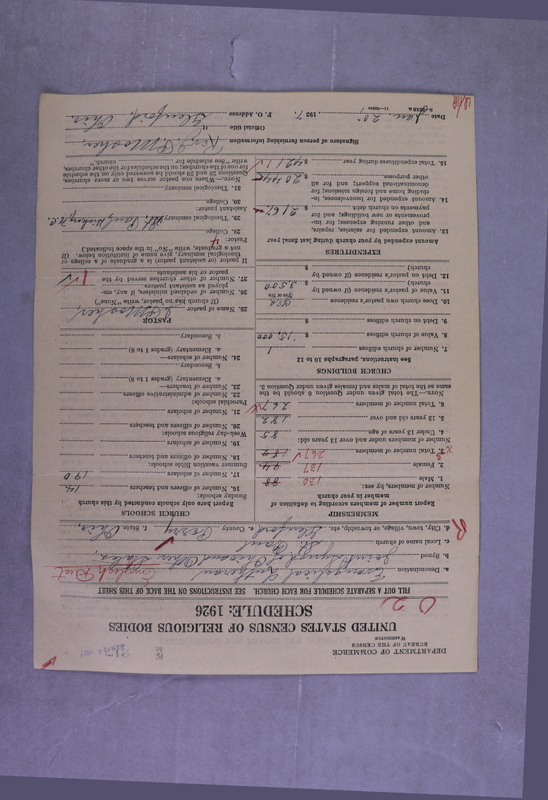 DEPARTMENT OF COMMERCE
BUREAU OF THE CENSUS
WASHINGTON
UNITED STATES CENSUS OF RELIGIOUS BODIES
SCHEDULE: 1926
FILL OUT A SEPARATE SCHEDULE FOR EACH CHURCH. SEE INSTRUCTIONS ON THE BACK OF THIS SHEET
a. Denomination Evangelical Lutheran
b. Synod Joint Synod Ohio and Other States
English Dist
c. Local name of church St. Paul
d. City, town, village, or township, etc. Glenford e. County Perry f. State Ohio
MEMBERSHIP
Report number of members according to definition of member in your church
Number of members, by sex:
1. Male 130 88
2. Female 137 94
3. Total number of members 267 182
Number of members under and over 13 years old:
4. Under 13 years of age 85
5. 13 years old and over 182
6. Total number of members 267
NOTE.—The total given under Question 6 should be the same as the total of males and females given under Question 3.
CHURCH BUILDINGS
See instructions, paragraphs 10 to 12
7. Number of church edifices 1
8. Value of church edifices $ 15,000
9. Debt on church edifices $
10. Does church own pastor's residence Yes
Yes or No
11. Value of pastor's residence (if owned by church) $ 3500
12. Debt on pastor's residence (if owned by church) $
EXPENDITURES
Amount expended by your church during last fiscal year
13. Amount expended for salaries, repairs, and other running expenses; for improvements or new buildings; and for payments on church debt $ 2167
14. Amount expended for benevolences, including home and foreign missions; for denominational support; and for all other purposes $ 2044
15. Total expenditures during year $ 4211
CHURCH SCHOOLS
Report here only schools conducted by this church
Sunday schools:
16. Number of officers and teachers 14
17. Number of scholars 190
Summer vacation Bible schools:
18. Number of officers and teachers
19. Number of scholars
Week-day religious schools:
20. Number of officers and teachers
21. Number of scholars
Parochial schools:
22. Number of administrative officers
23. Number of teachers—
a. Elementary (grades 1 to 8)
b. Secondary
24. Number of scholars—
a. Elementary (grades 1 to 8)
b. Secondary
PASTOR
25. Name of pastor Mosher
(If church has no pastor, write "None")
26. Number of assistant ministers, if any, employed as assistant pastors
27. Number of other churches served by the pastor or his assistants 1
If pastor (or assistant pastor) is a graduate of a college or theological seminary, give name of institution below. (If not a graduate, write "No" in the space indicated.)
Pastor: 4
28. College
29. Theological seminary
Assistant pastor:
30. College
31. Theological seminary
NOTE.—Where one pastor serves two or more churches, Questions 28 and 29 should be answered only on the schedule for one of the churches; on the schedules for the other churches, write "See schedule for church."
Signature of person furnishing information Rev. Mosher
Official title
P. O. Address Glenford, Ohio
Date Jan. 20, 1927.